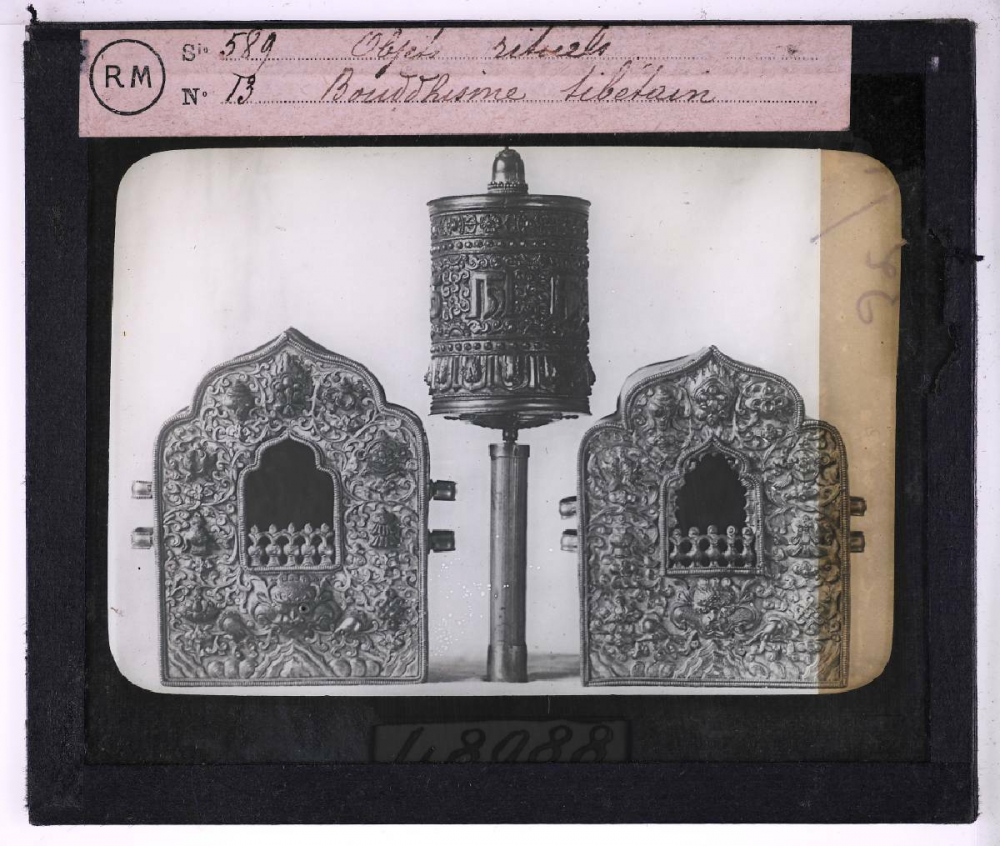 RM
Sie 589 Objets rituels
N° 13 Bouddhisme tibétain
48088